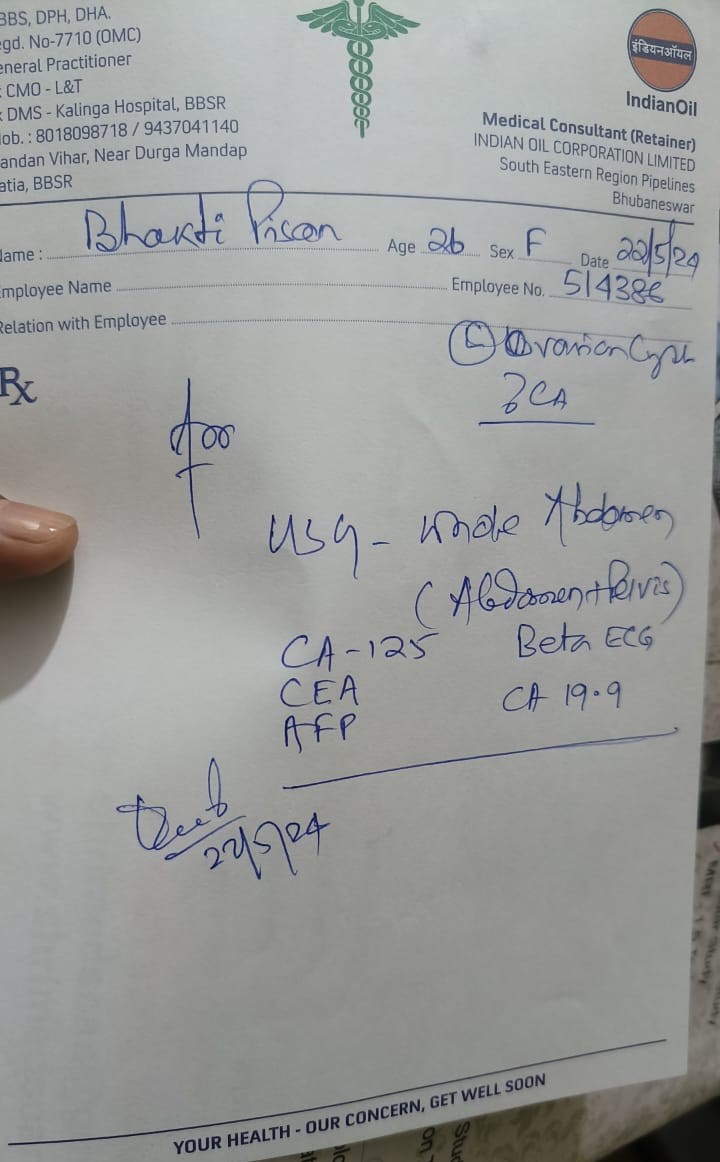 BBS, DPH, DHA.
egd. No-7710 (OMC)
eneral Practitioner
CMO - L&T
DMS - Kalinga Hospital, BBSR
ob. : 8018098718 / 9437041140
andan Vihar, Near Durga Mandap
atia, BBSR
इंडियनऑयल
IndianOil
Medical Consultant (Retainer)
INDIAN OIL CORPORATION LIMITED
South Eastern Region Pipelines
Bhubaneswar
ame : Bhakti Age 26 Sex F Date 22/5/24
mployee Name Employee No. 514386
Relation with Employee
Ovarian
Rx
? CA
for
USG - Whole Abdomen
(Abdomen + Pelvis)
CA-125 Beta ECG
CEA CA 19.9
AFP
22/5/24
YOUR HEALTH - OUR CONCERN, GET WELL SOON